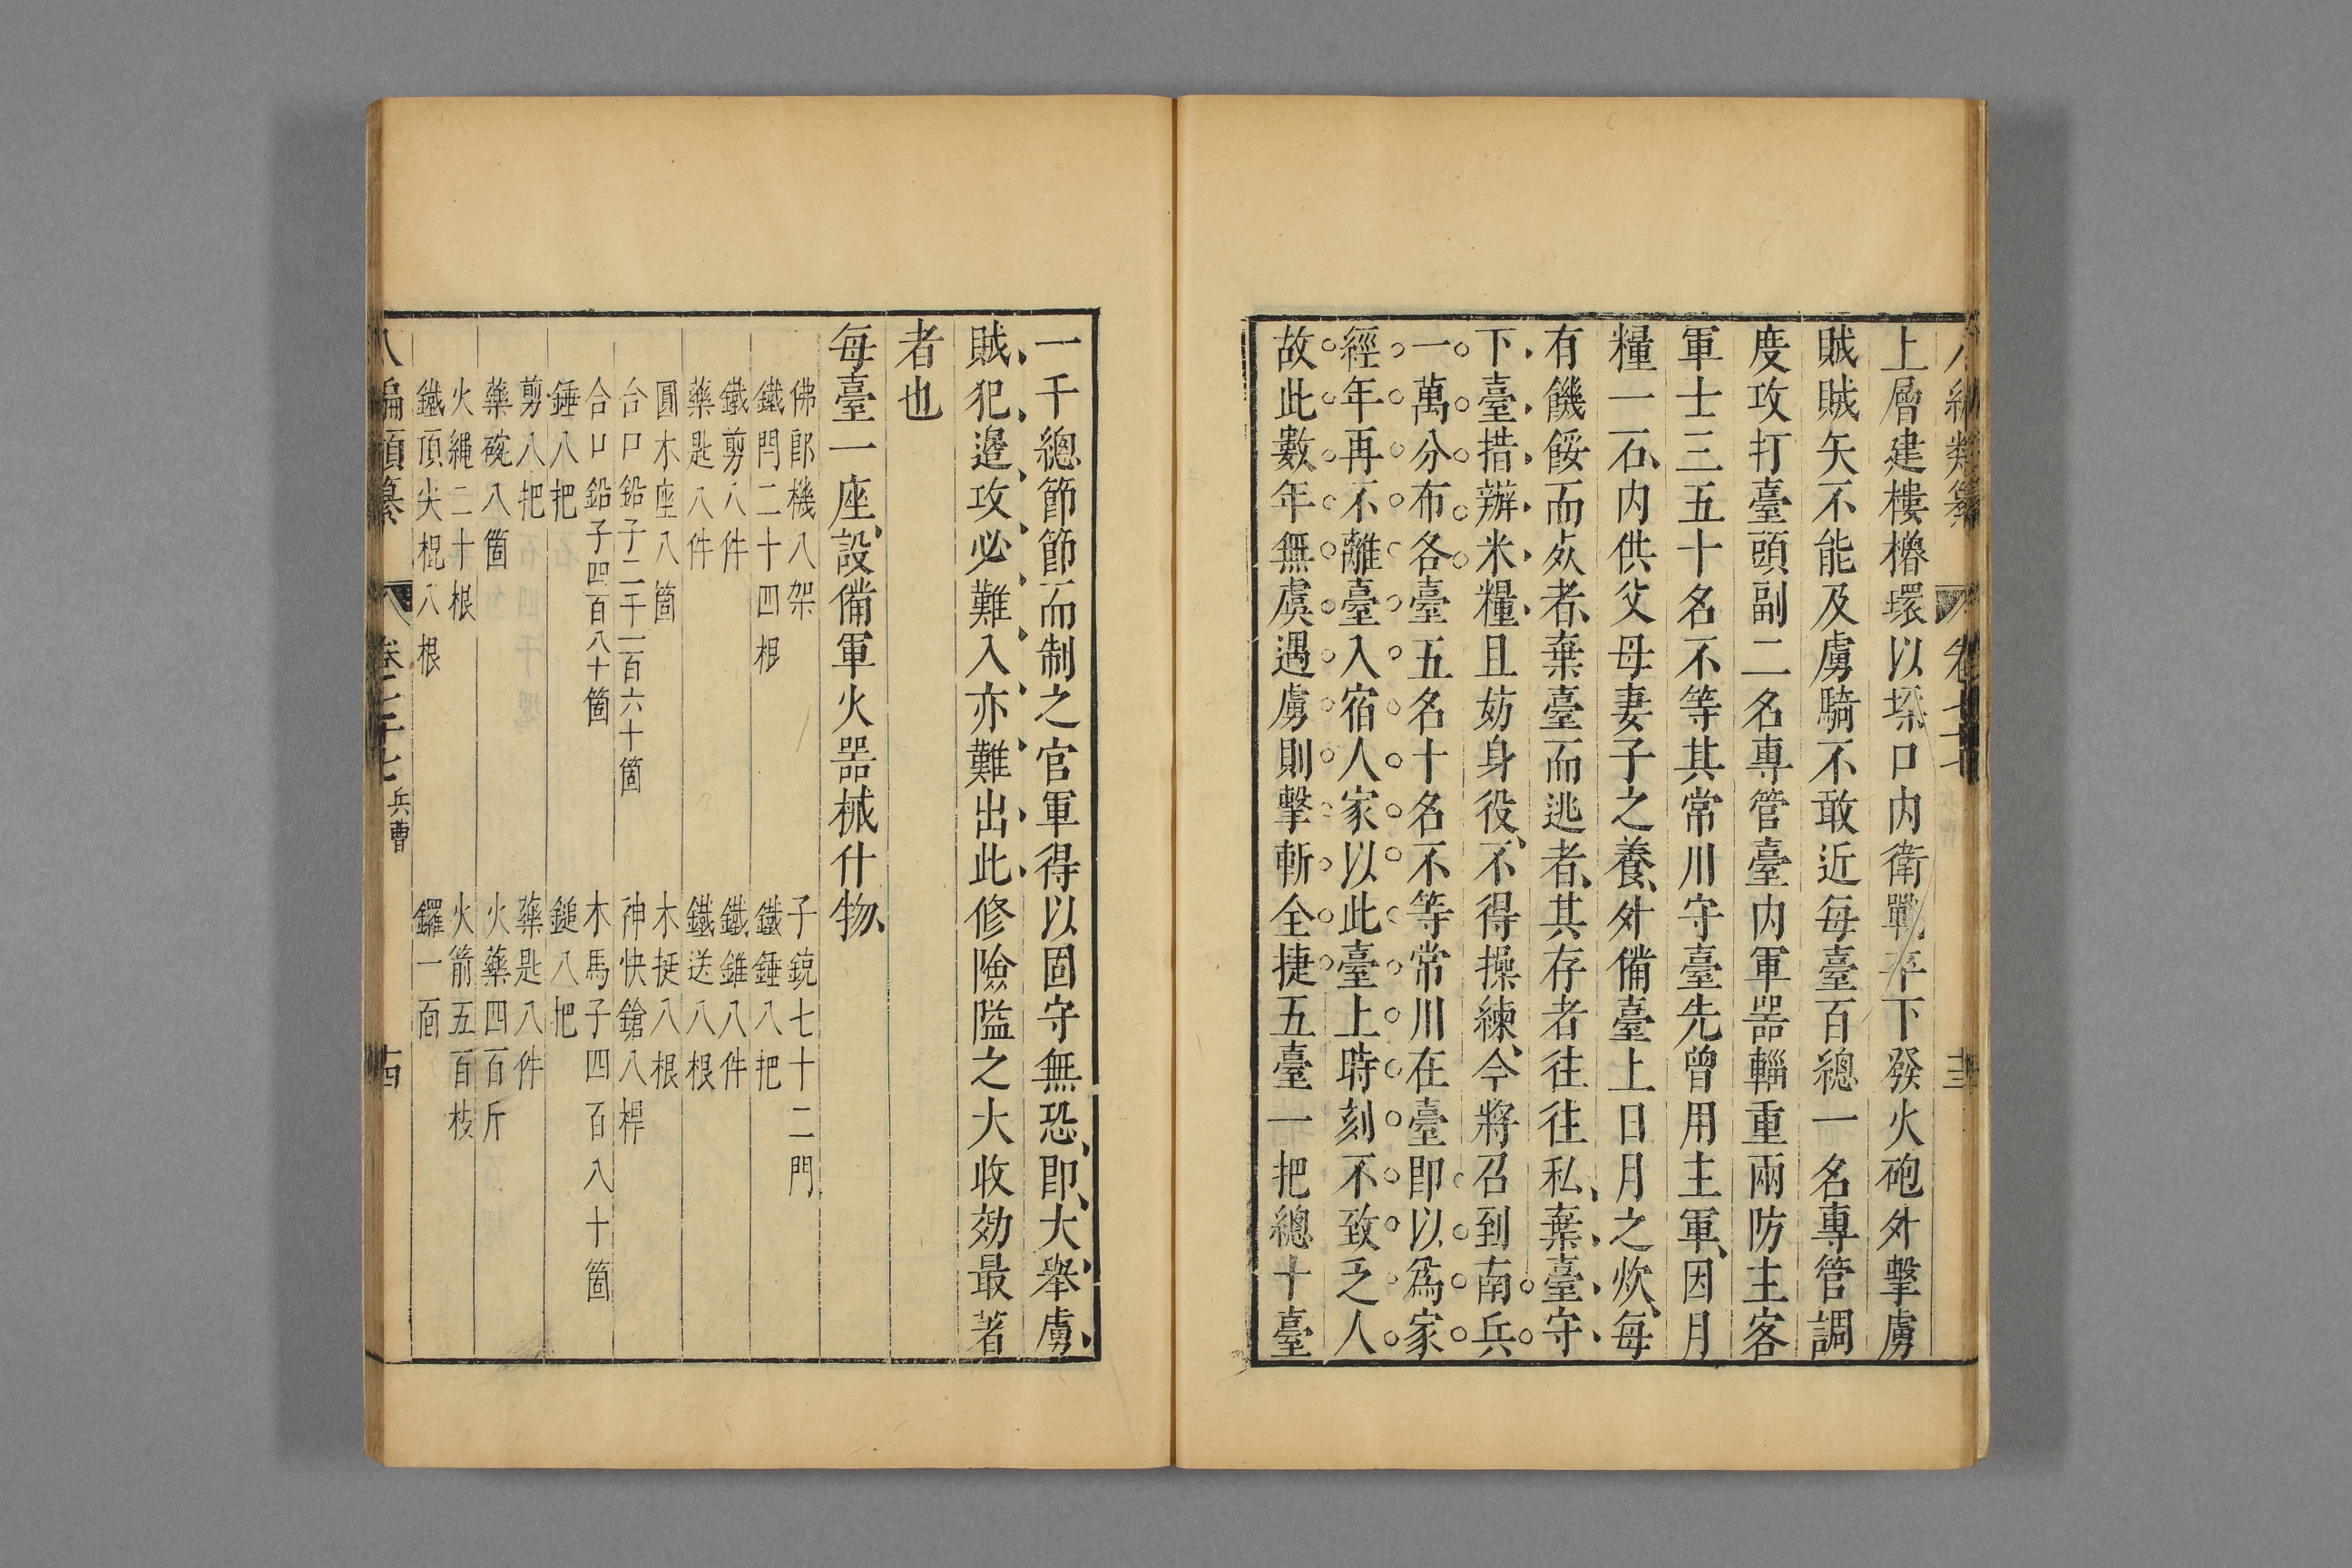 上層建樓櫓環以垜口内衛戰卒下發火砲外擊虜
賊賊矢不能及虜騎不敢近每臺百總一名專管調
度攻打臺頭副二名專管臺内軍器輜重兩防主客
軍士三五十名不等其常川守臺先曾用主軍因月
糧一石内供父母妻子之養外備臺上日月之炊每
有饑餒而死者棄臺而逃者其存者往往私棄臺守
下臺措辦米糧且妨身役不得操練今將召到南兵
一萬分布各臺五名十名不等常川在臺即以爲家
經年再不離臺入宿人家以此臺上時刻不致乏人
故此數年無虞遇虜則擊斬全捷五臺一把總十臺
一千總節節而制之官軍得以固守無恐即大舉虜
賊犯邉攻必難入亦難出此修險隘之大收効最著
者也
每臺一座設備軍火器械什物
佛郎機八架 子銃七十二門
鐵閂二十四根 鐵錘八把
鐵剪八件 鐵錐八件
藥匙八件 鐵送八根
圓木座八箇 木挺八根
合口鉛子二千一百六十箇 神快鎗八桿
合口鉛子四百八十箇 木馬子四百八十箇
錘八把 鎚八把
剪八把 藥匙八件
藥碗八箇 火藥四百斤
火繩二十根 火箭五百枝
鐵頂尖棍八根 鑼一面
八編類纂 卷七十七 兵曹 十四